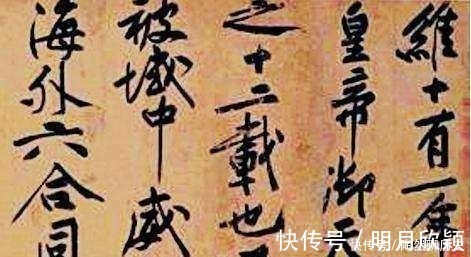 維十有一年
皇帝御天
之十二載也
被域中威
海外六合同
快传号 / 明月欣颖